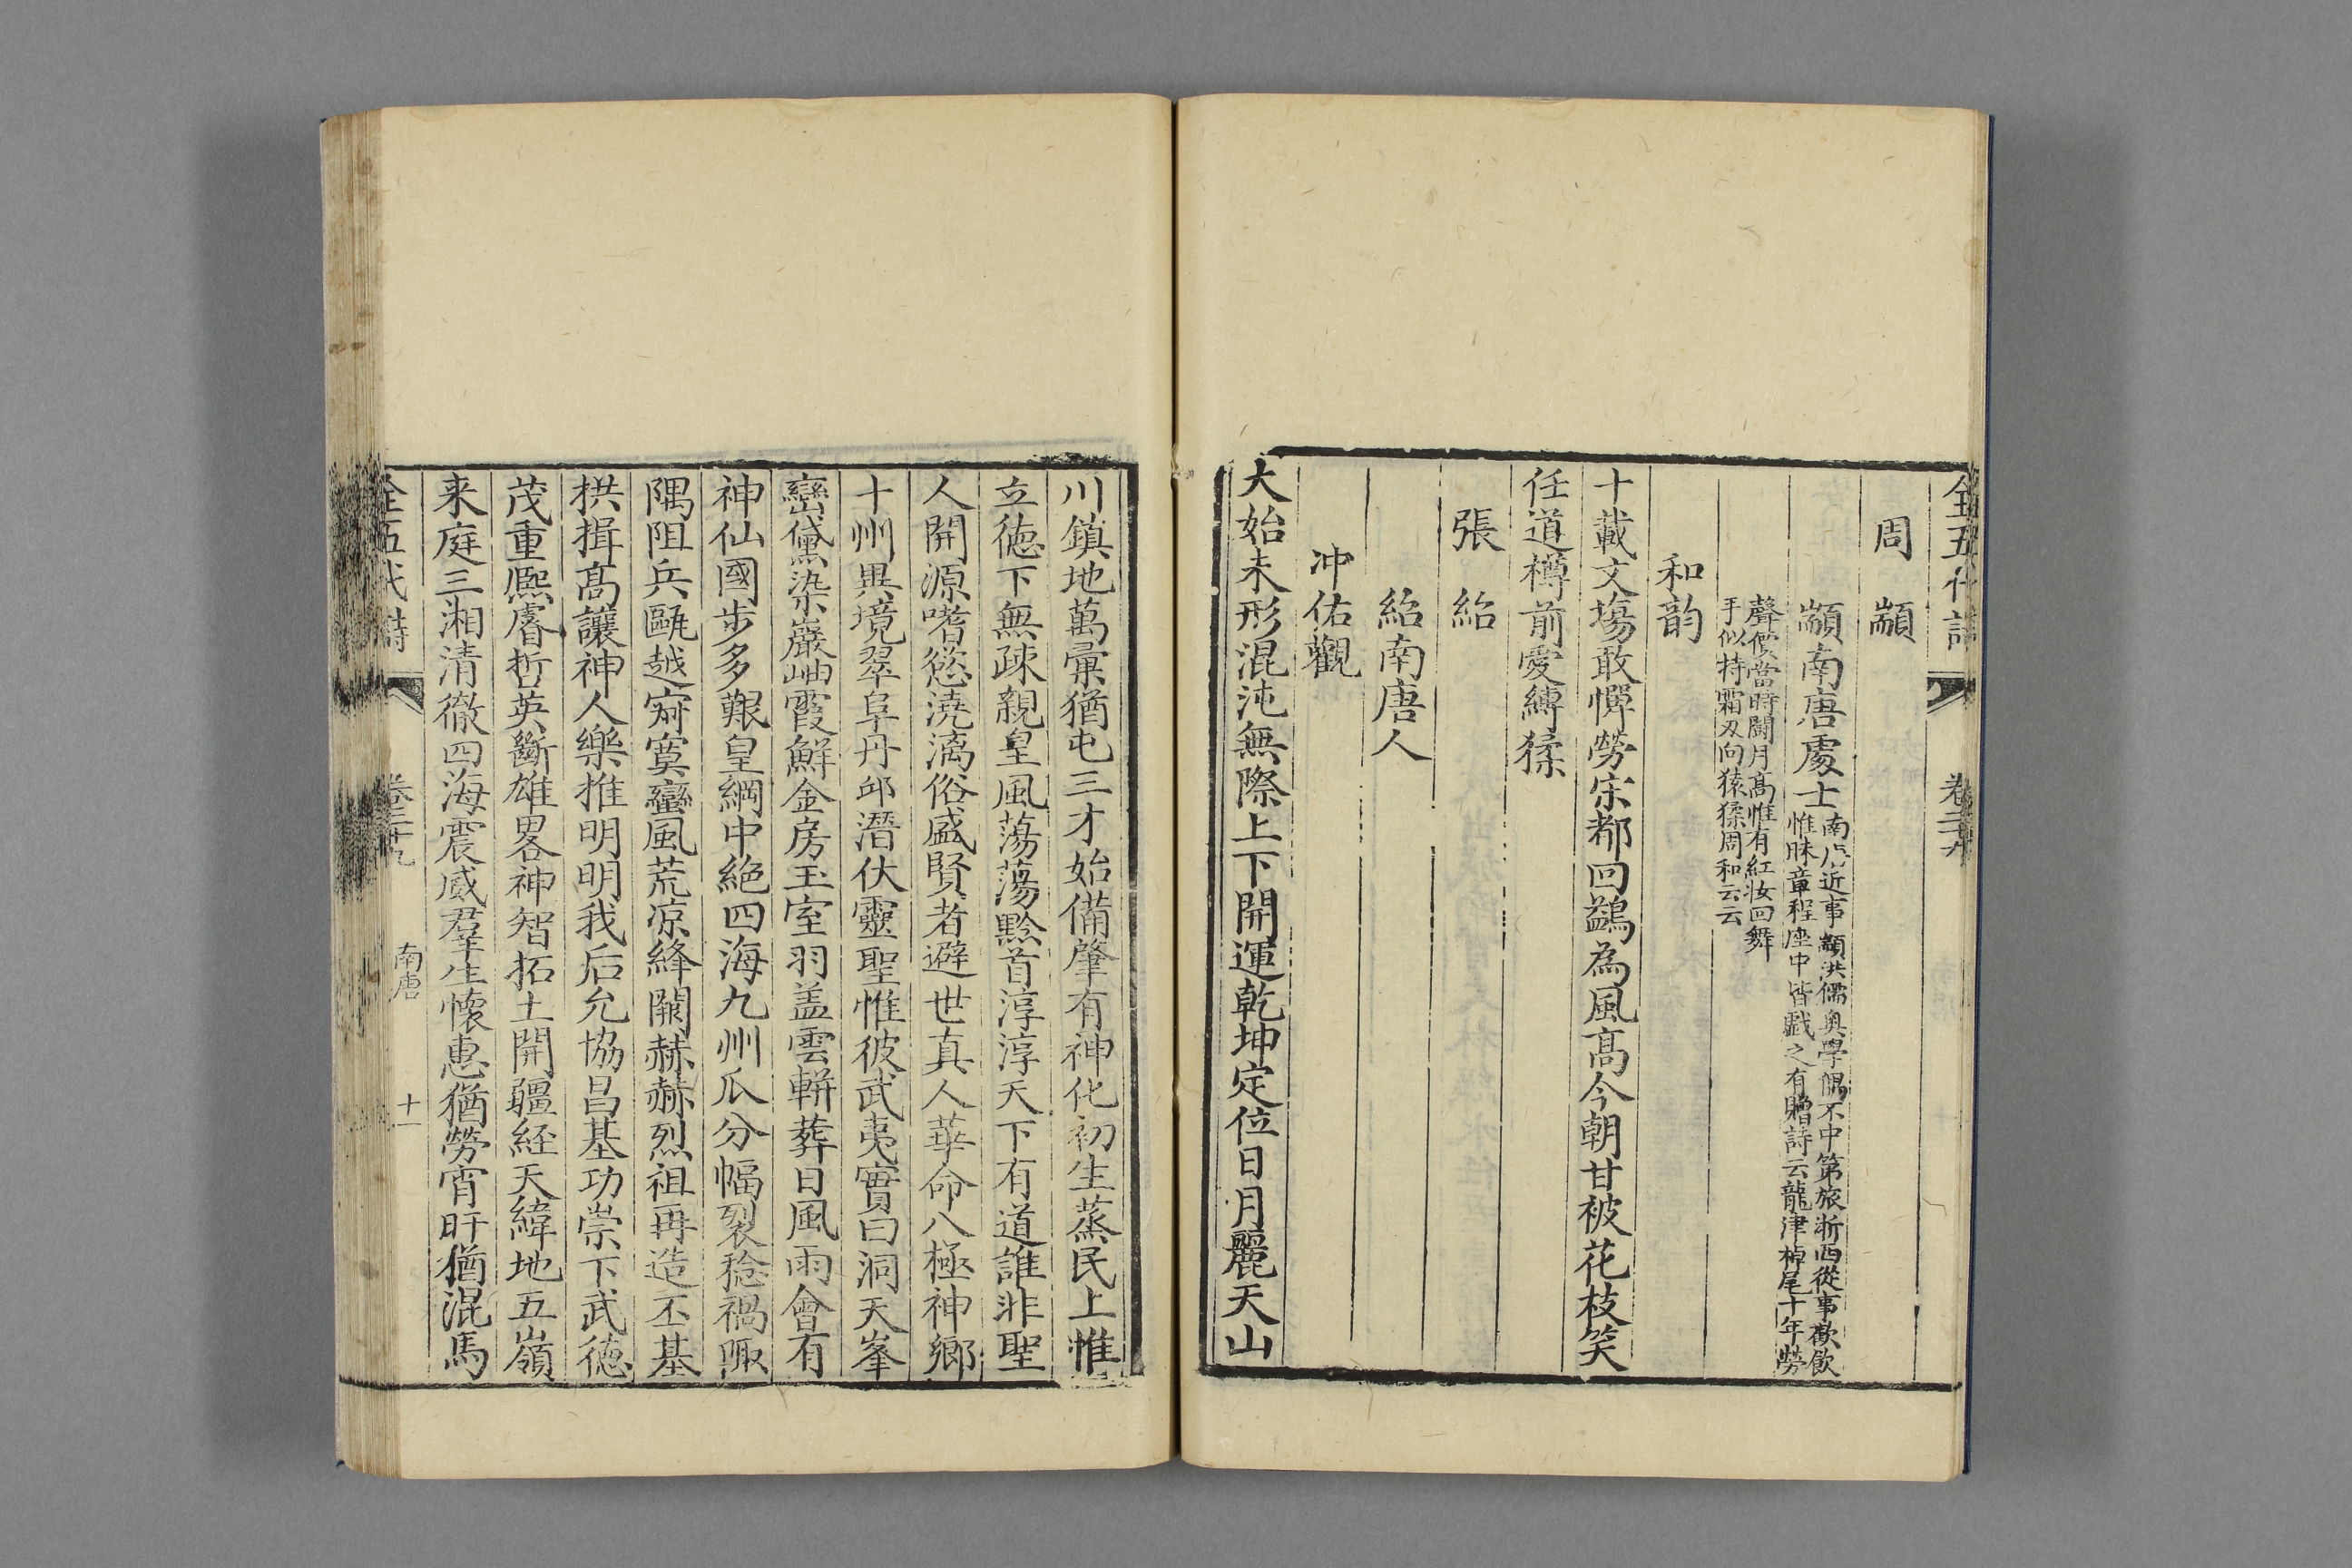 全五代詩 卷三十九
周顓
顓南唐處士南唐近事顓洪儒奧學偶不中第旅浙西從事歡飲
惟昧章程座中皆戲之有贈詩云龍津掉尾十年勞
聲價當時鬭月髙惟有紅妝回舞
手似持霜刃向猿猱周和云云
和韵
十載文塲敢憚勞宋都回鷁為風髙今朝甘被花枝笑
任道樽前愛縛猱
張紿
紿南唐人
冲佑觀
大始未形混沌無際上下開運乾坤定位日月麗天山
川鎮地萬彚猶屯三才始備肇有神化初生蒸民上惟
立德下無疎親皇風蕩蕩黔首淳淳天下有道誰非聖
人開源嗜慾澆漓俗盛賢者避世真人華命八極神鄉
十州異境翠阜丹邱潛伏靈聖惟彼武夷實曰洞天峯
巒黛染巖岫霞鮮金房玉室羽盖雲軿葬日風雨會有
神仙國步多艱皇綱中絶四海九州瓜分幅裂稔禍陬
隅阻兵甌越㝛寞蠻風荒凉絳闕赫赫烈祖再造丕基
拱揖髙讓神人樂推明明我后允協昌基功崇下武德
茂重熈睿哲英斷雄畧神智拓土開疆經天緯地五嶺
来庭三湘清徹四海震威羣生懷惠猶勞宵旰猶混馬
全五代詩 卷三十九 南唐 十一